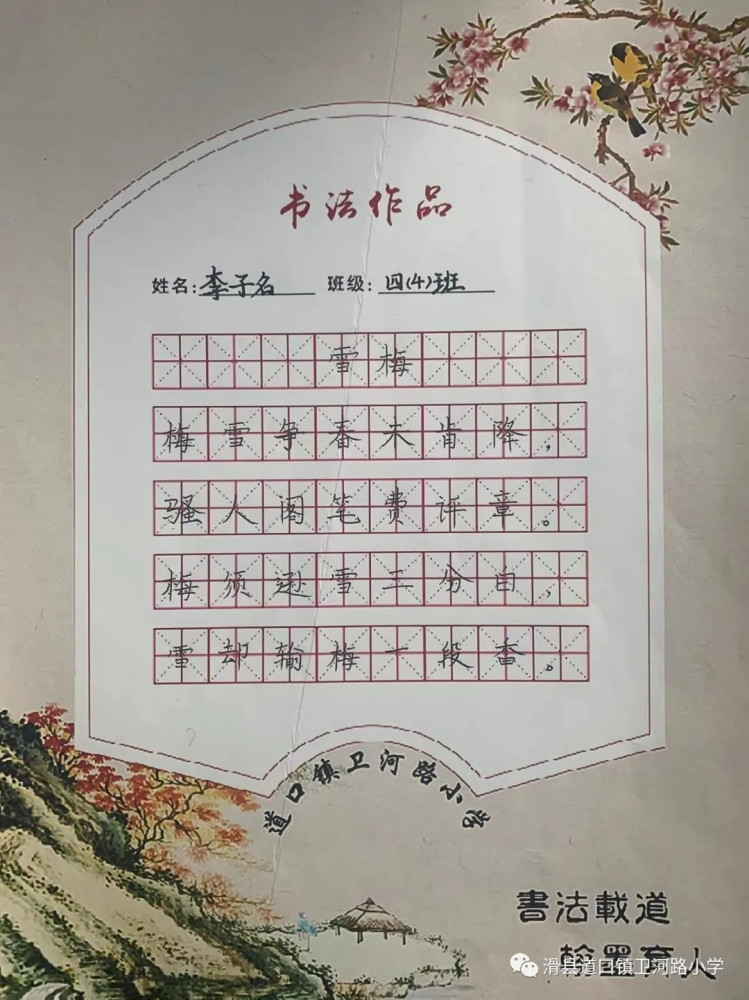 书法作品
姓名:李子名 班级:四(4)班
雪梅
梅雪争春未肯降,
骚人阁笔费评章。
梅须逊雪三分白,
雪却输梅一段香。
道口镇卫河路小学
書法載道
翰墨育人
滑县道口镇卫河路小学